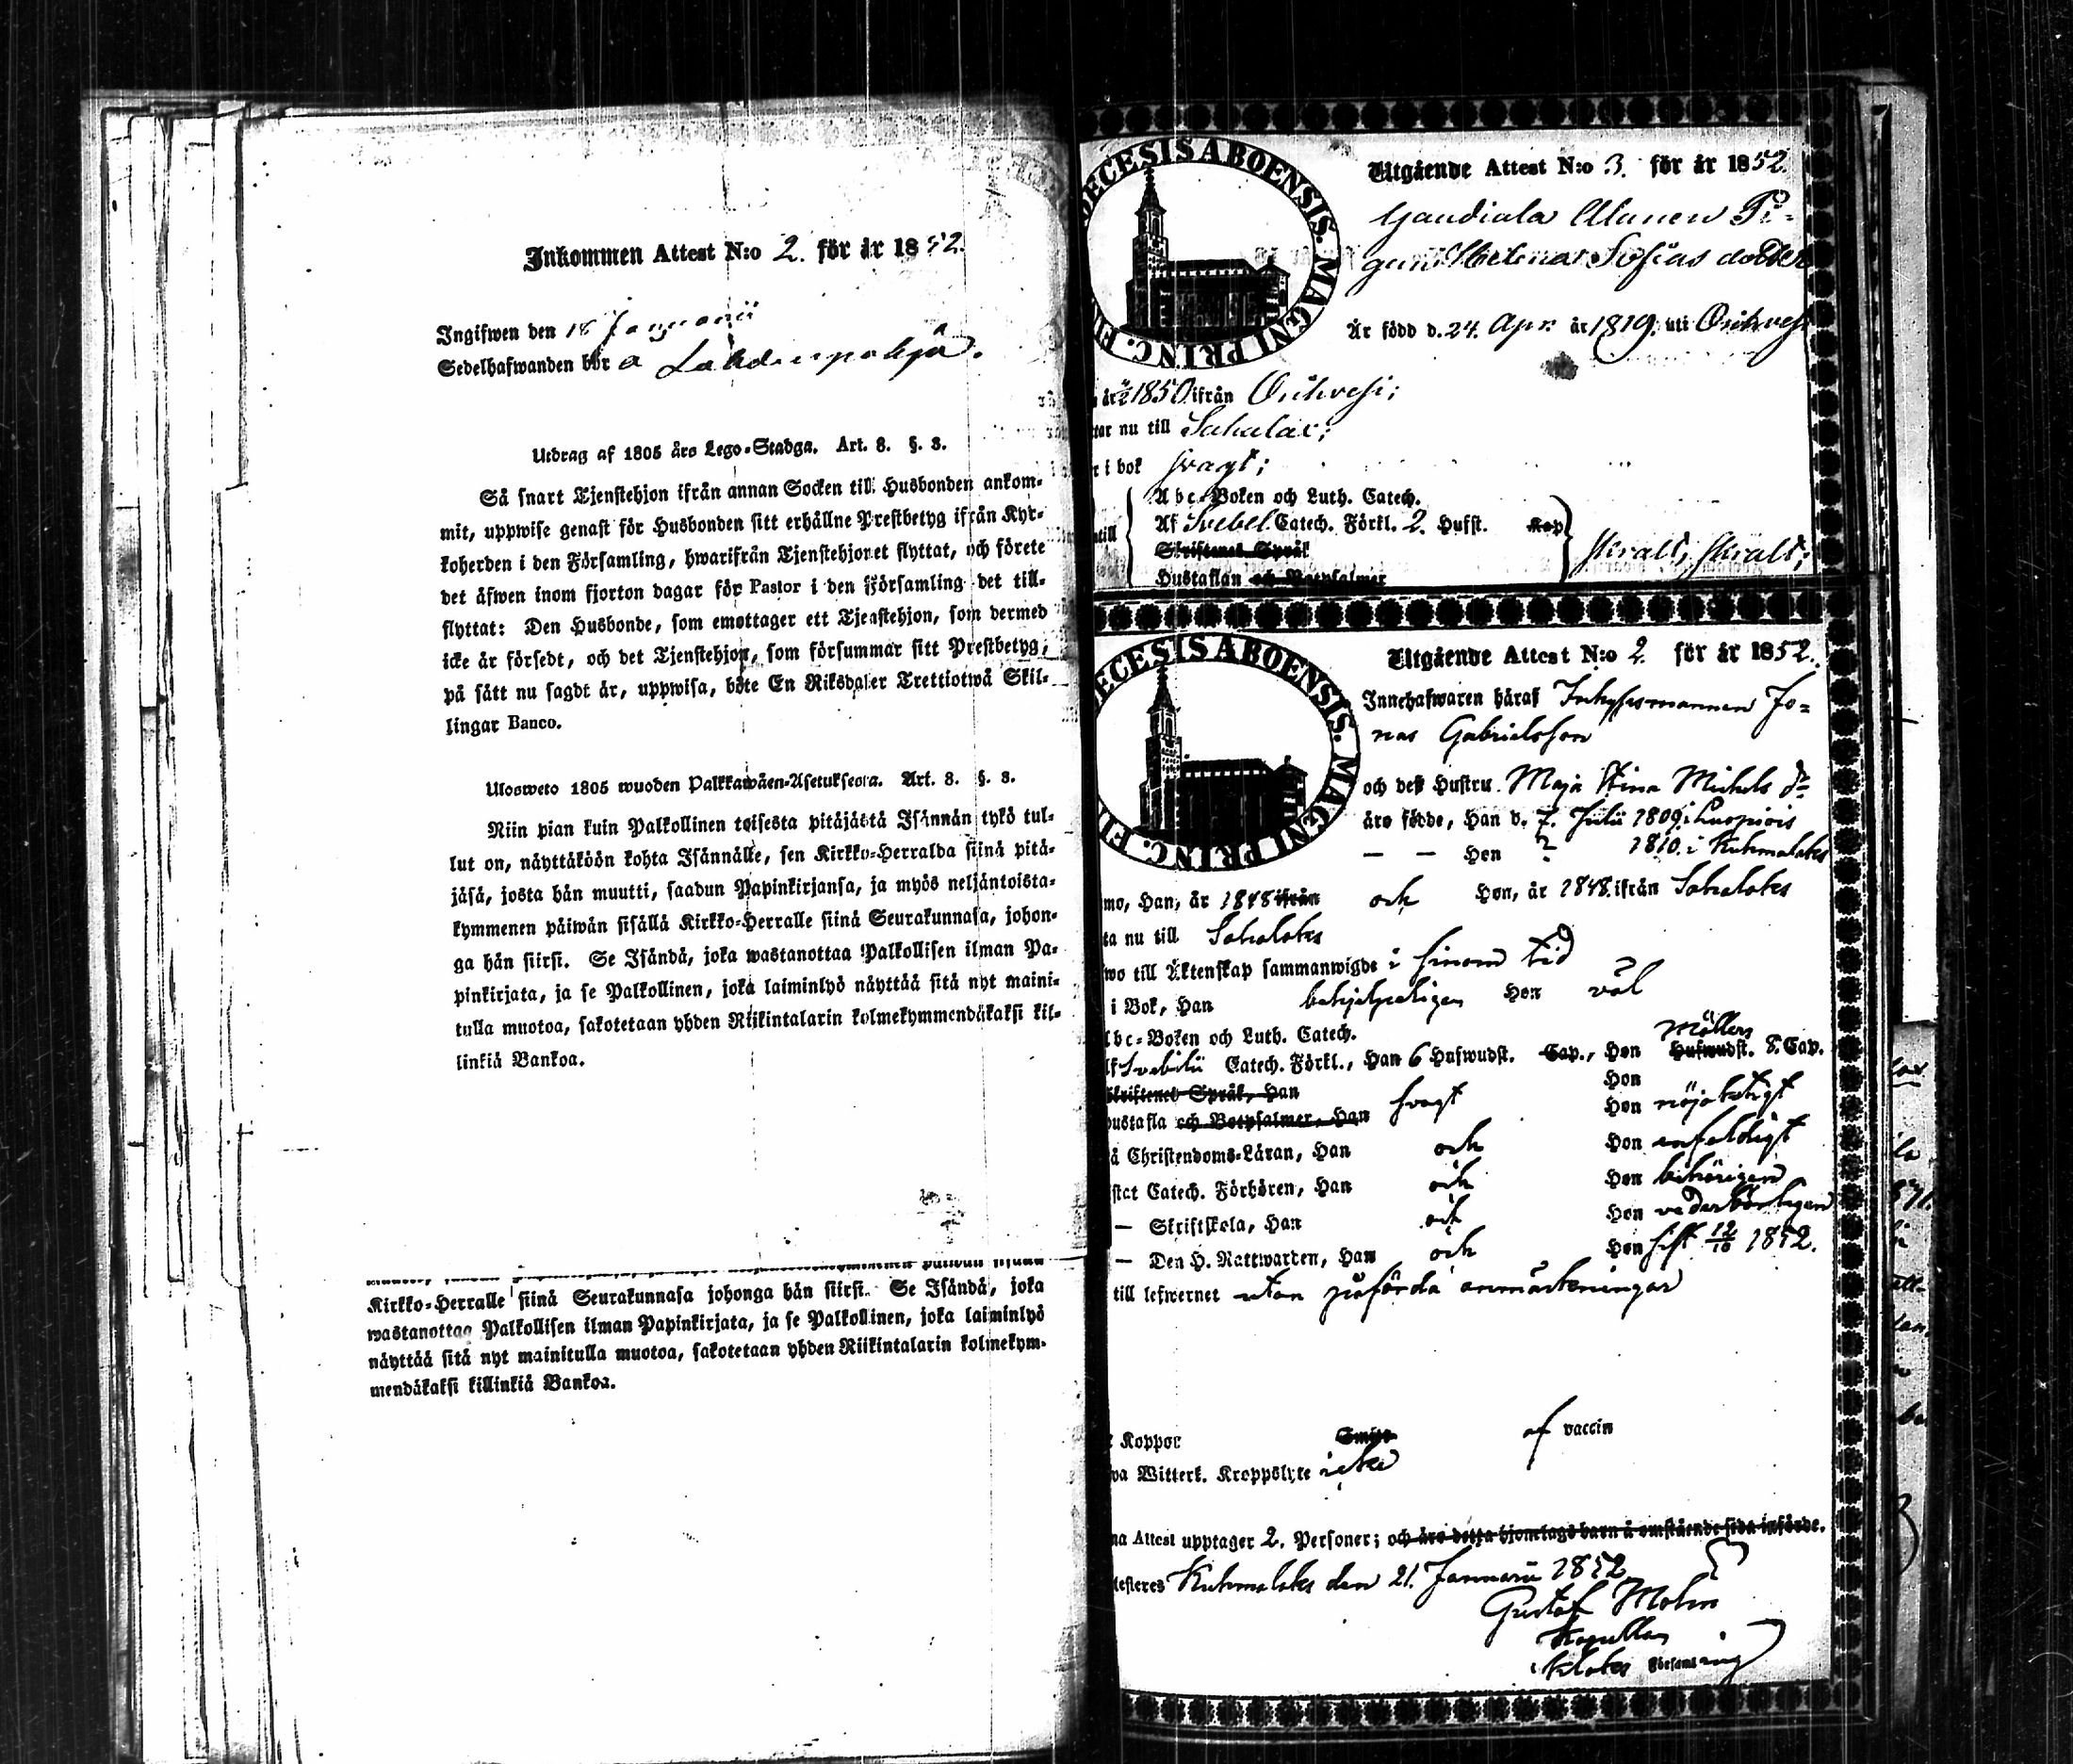 Inkommen Attest N:o 2. för år 1852.
Ingifwen den 18 Januarii
Sedelhafwanden bör å Lahdenpohja.
Utdrag af 1805 års Lego-Stadga. Art. 8. §. 8.
Så snart Tjenstehjon ifrån annan Socken till Husbonden ankom-
mit, uppwise genast för Husbonden sitt erhållne Prestbetyg ifrån Kyr-
koherden i den Församling, hwarifrån Tjenstehjonet flyttat, och förete
det äfwen inom fjorton dagar för Pastor i den Församling det till-
flyttat: Den Husbonde, som emottager ett Tjenstehjon, som dermed
icke är försedt, och det Tjenstehjon, som försummar sitt Prestbetyg,
på sätt nu sagdt är, uppwisa, böte En Riksdaler Trettiotwå Skil-
lingar Banco.
Ulosweto 1805 wuoden Palkkawäen-Asetuksesta. Art. 8. §. 8.
Niin pian kuin Palkollinen toisesta pitäjästä Isännän tykö tul-
lut on, näyttäköön kohta Isännälle, sen Kirkko-Herralda siinä pitä-
jäsä, josta hän muutti, saadun Papinkirjansa, ja myös neljäntoista-
kymmenen päiwän sisällä Kirkko-Herralle siinä Seurakunnasa, johon-
ga hän siirsi. Se Isändä, joka wastanottaa Palkollisen ilman Pa-
pinkirjata, ja se Palkollinen, joka laiminlyö näyttää sitä nyt maini-
tulla muotoa, sakotetaan yhden Riikintalarin kolmekymmendäkaksi kil-
linkiä Bankoa.
Kirkko-Herralle siinä Seurakunnasa johonga hän siirsi. Se Isändä, joka
wastanottaa Palkollisen ilman Papinkirjata, ja se Palkollinen, joka laiminlyö
näyttää sitä nyt mainitulla muotoa, sakotetaan yhden Riikintalarin kolmekym-
mendäkaksi killinkiä Bankoa.
ECESIS ABOENSIS. MAGNI PRINC. FI
Utgående Attest N:o 3. för år 1852.
Gaudiala Alanen Pi-
gan Helena Sofias dotter
Är född d. 24. Apr. år 1819. uti Orihvesi
år 1850 ifrån Orihvesi;
tar nu till Sahalax;
r i bok svagt;
Abc-Boken och Luth. Catech.
Af Svebel. Catech. Förkl. 2. Hufst. Kap
Skriftenes Språk
Hustaflan och Botpsalmer
ECESIS ABOENSIS. MAGNI PRINC. FI
Utgående Attest N:o 2. för år 1852.
Innehafwaren häraf Inhysesmannen Jo-
nas Gabrielsson
och dess Hustru Maja Stina Michels dr
äro födde, Han d. 7. Julii 1809. i Luopiois
— — Hon ? 1810. i Kuhmalaks
mo, Han, år 1848 ifrån och Hon, år 1848. ifrån Sahalaks
ta nu till Sahalaks
wo till Äktenskap sammanwigde i sinom tid
i Bok, Han behjelpeligen Hon väl
bc-Boken och Luth. Catech.
Möllers
lf Svebilii Catech. Förkl., Han 6 Hufwudst. Cap., Hon Hufwudst. 8. Cap.
Skriftenes Språk, Han Hon
ustafla och Botpsalmer, Han svagt Hon nöjaktigt
å Christendoms-Läran, Han och Hon enfaldigt
stat Catech. Förhören, Han och Hon behörigen
— Skriftskola, Han och Hon vederbörligen
— Den H. Nattwarden, Han och Hon sist 12/10 1852.
till lefwernet utan påförda anmärkningar
Koppor Smitt af vaccin
wa Witterl. Kroppslyte icke
na Attest upptager 2. Personer; och äro detta hjonelags barn å omstående sida införde.
testeres Kuhmalaks den 21. Januarii 1852
Gustaf Molin
Kapellan
i Klaks Församling